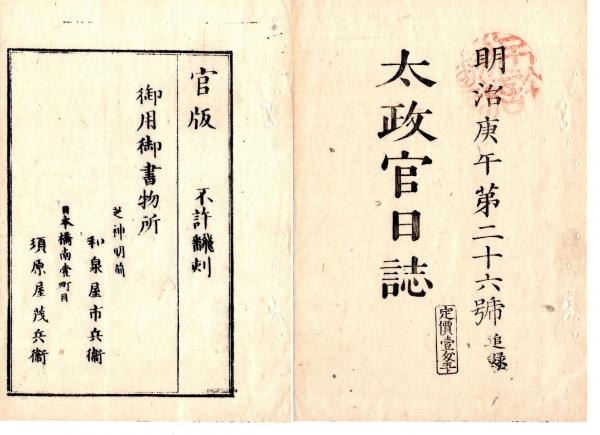 明治庚午第二十六號追録
太政官日誌
定價壹匁五卜
官版 不許翻刻
御用御書物所
芝神明前
和泉屋市兵衞
日本橋南壹町目
須原屋茂兵衞